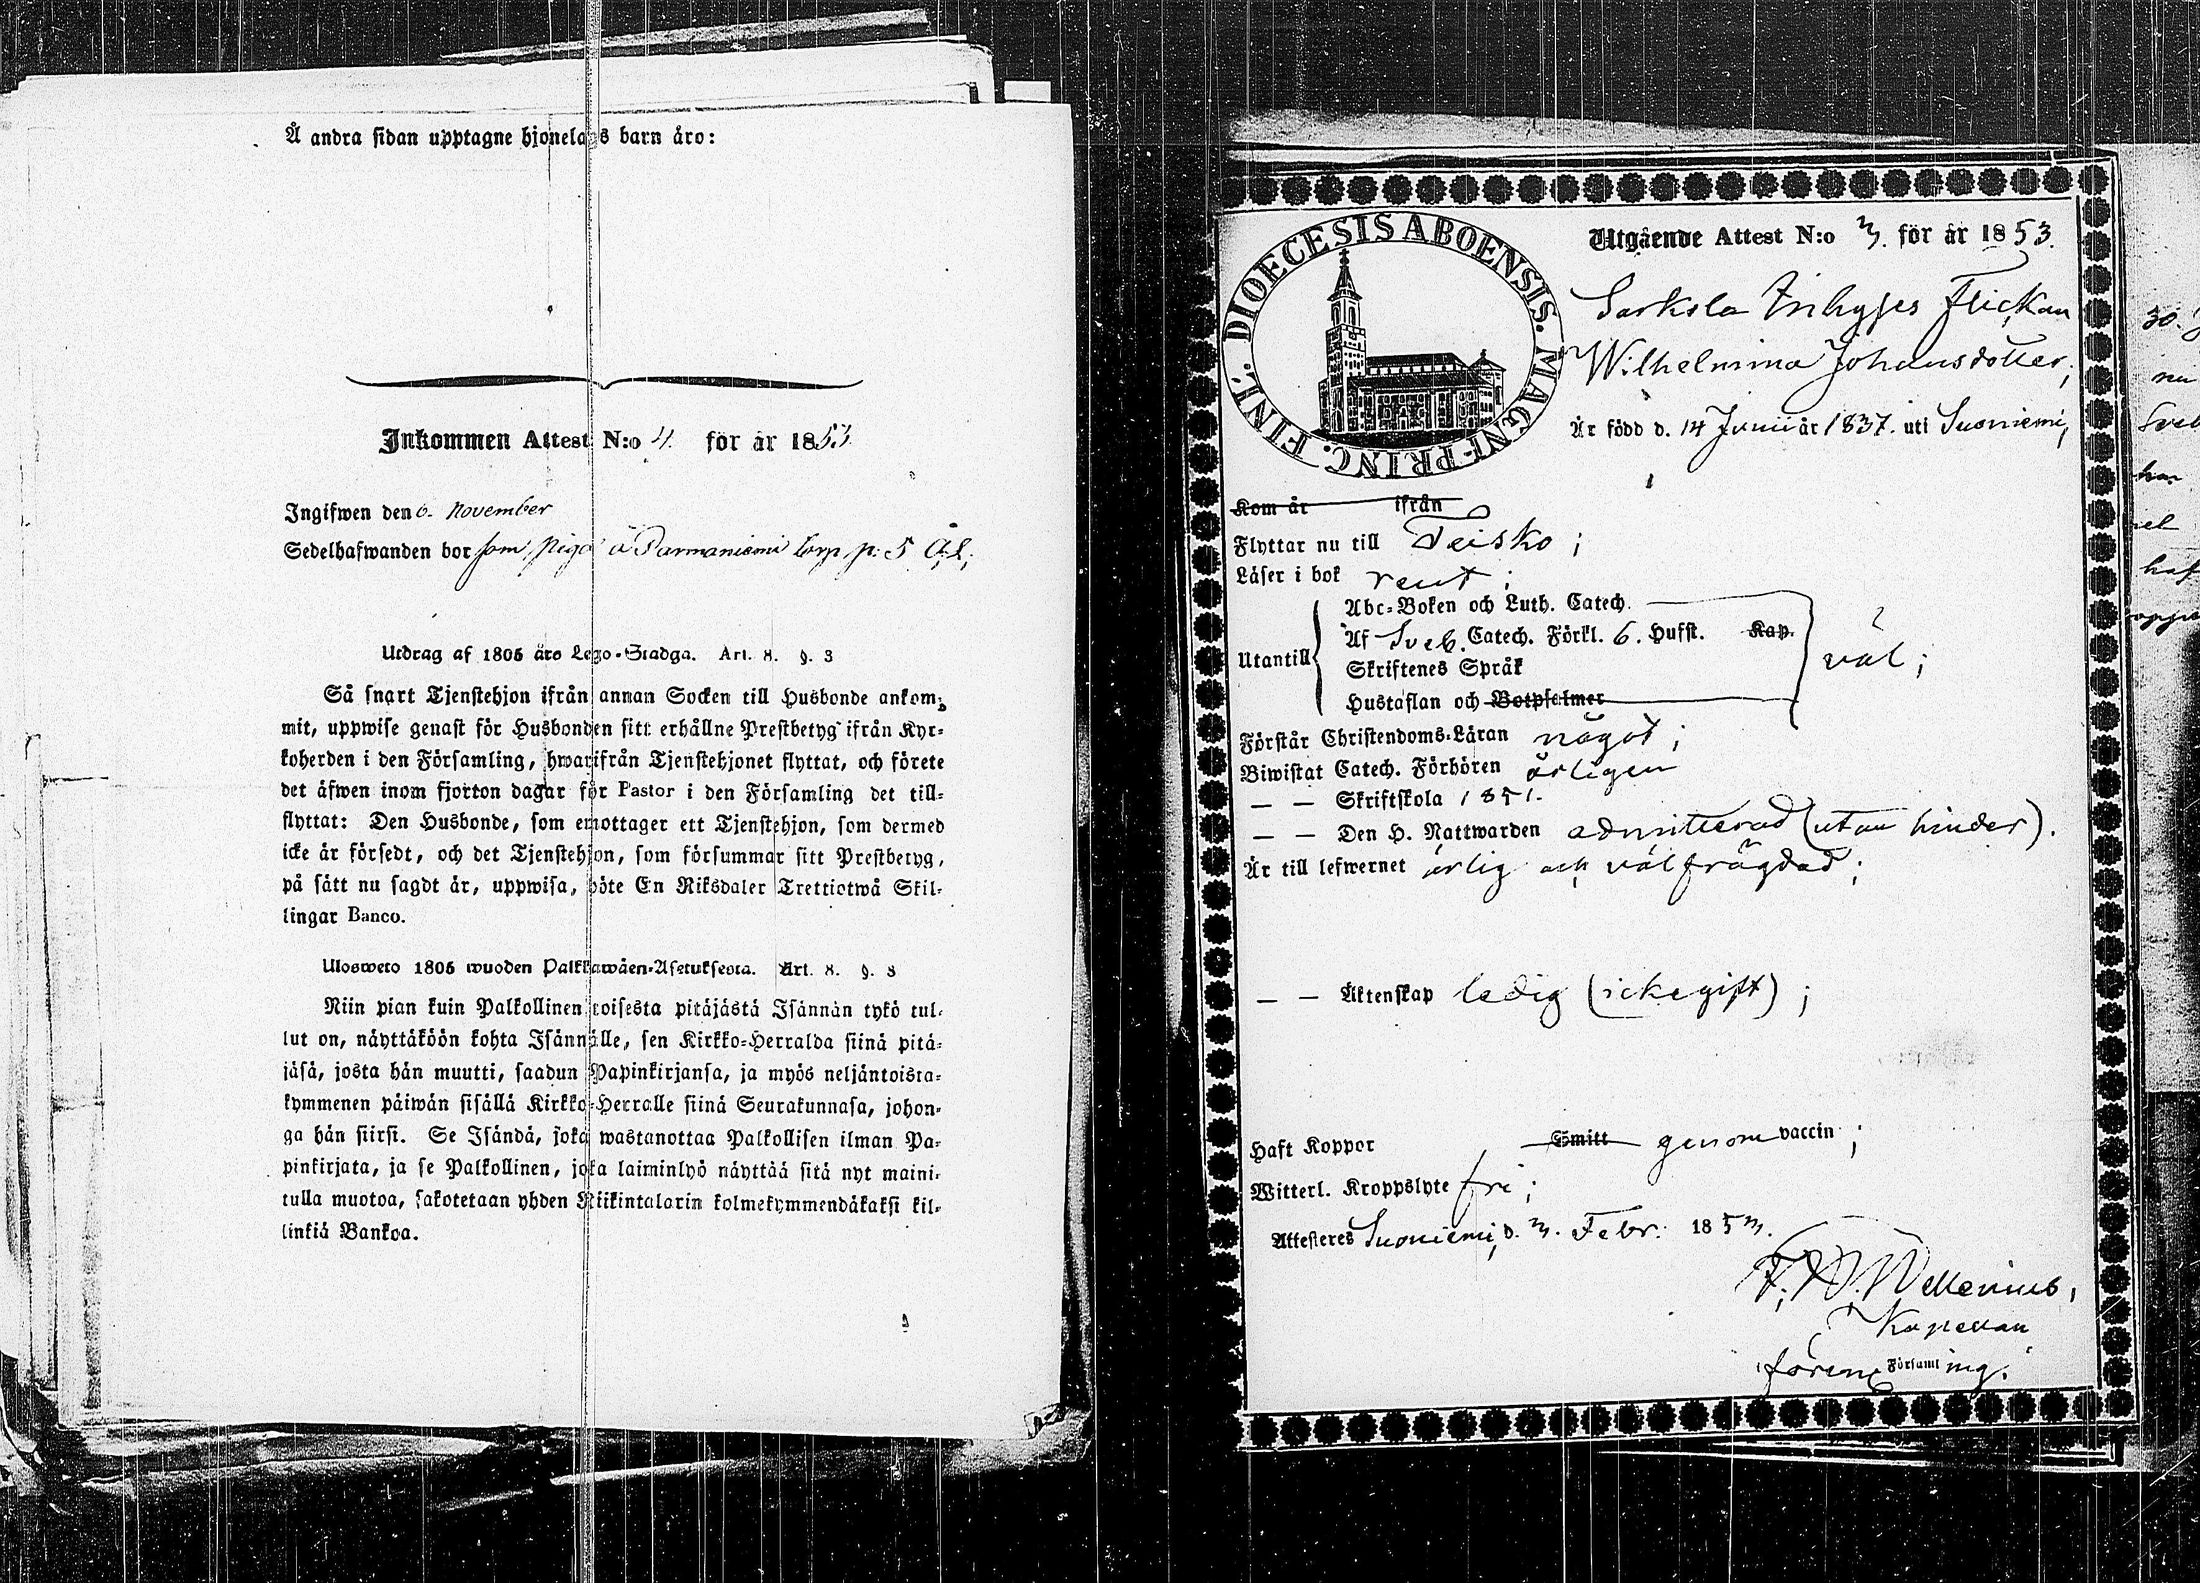 Å andra sidan upptagne hjonelags barn äro:
Inkommen Attest N:o 4. för år 1853
Ingifwen den 6. November
Sedelhafwanden bor som piga å Parmaniemi torp p: 5
Utdrag af 1805 års Lego-Stadga. Art. 8. §. 3
Så snart Tjenstehjon ifrån annan Socken till Husbonde ankom-
mit, uppwise genast för Husbonden sitt erhållne Prestbetyg ifrån Kyr-
koherden i den Församling, hwarifrån Tjenstehjonet flyttat, och förete
det äfwen inom fjorton dagar för Pastor i den Församling det till-
flyttat: Den Husbonde, som emottager ett Tjenstehjon, som dermed
icke är försedt, och det Tjenstehjon, som försummar sitt Prestbetyg,
på sätt nu sagdt är, uppwisa, böte En Riksdaler Trettiotwå Skil-
lingar Banco.
Ulosweto 1805 wuoden Palkkawäen-Asetuksesta. Art. 8. §. 3
Niin pian kuin Palkollinen toisesta pitäjästä Isännän tykö tul-
lut on, näyttäköön kohta Isännälle, sen Kirkko-Herralda siinä pitä-
jäsä, josta hän muutti, saadun Papinkirjansa, ja myös neljäntoista-
kymmenen päiwän sisällä Kirkko-Herralle siinä Seurakunnasa, johon-
ga hän siirsi. Se Isändä, joka wastanottaa Palkollisen ilman Pa-
pinkirjata, ja se Palkollinen, joka laiminlyö näyttää sitä nyt maini-
tulla muotoa, sakotetaan yhden Riikintalarin kolmekymmendäkaksi kil-
linkiä Bankoa.
DIOECESIS ABOENSIS. MAGNI-PRINC. FINL.
Utgående Attest N:o 3. för år 1853.
Sarkola Inhyses Flickan
Wilhelmina Johansdotter,
Är född d. 14 Junii år 1837. uti Suoniemi,
Kom år ifrån
Flyttar nu till Teisko;
Läser i bok rent;
Abc-Boken och Luth. Catech.
Utantill Af Sveb. Catech. Förkl. 6. Hufst. Kap. väl;
Skriftenes Språk
Hustaflan och Botpsalmer
Förstår Christendoms-Läran något;
Biwistat Catech. Förhören årligen
— — Skriftskola 1851.
— — Den H. Nattwarden admitterad (utan hinder).
Är till lefwernet ärlig och välfrägdad;
— — Äktenskap ledig (icke gift);
Haft Koppor Smitt genom vaccin;
Witterl. Kroppslyte fri;
Attesteres Suoniemi, d. 3. Febr. 1853.
F. W. Wellenius,
Kapellan
Församling.
30.
nu
Sveb
har
el
haf